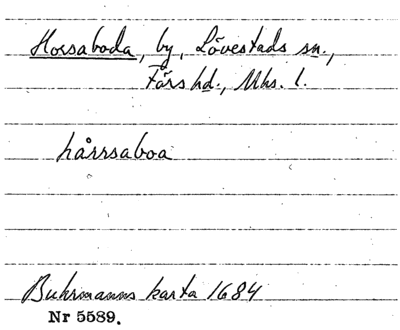 Horsaboda, by, Lövestads sn.,
Färs hd., Mhs. l.
hårrsaboa
Buhrmanns karta 1684
Nr 5589.